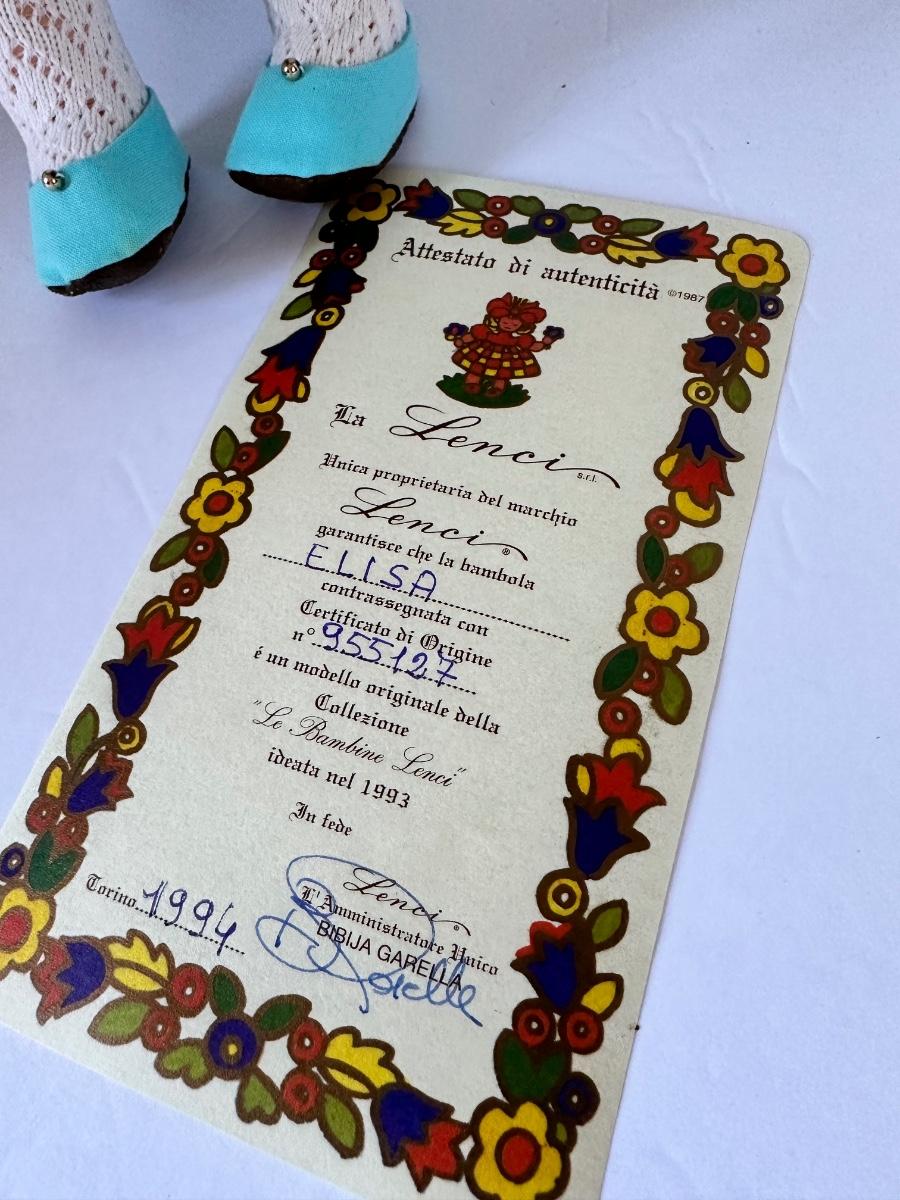 Attestato di autenticità ©1987
La Lenci s.r.l.
Unica proprietaria del marchio
Lenci®
garantisce che la bambola
ELISA
contrassegnata con
Certificato di Origine
n° 955127
é un modello originale della
Collezione
"Le Bambine Lenci"
ideata nel 1993
In fede
Torino 1994
Lenci®
L'Amministratore Unico
BIBIJA GARELLA